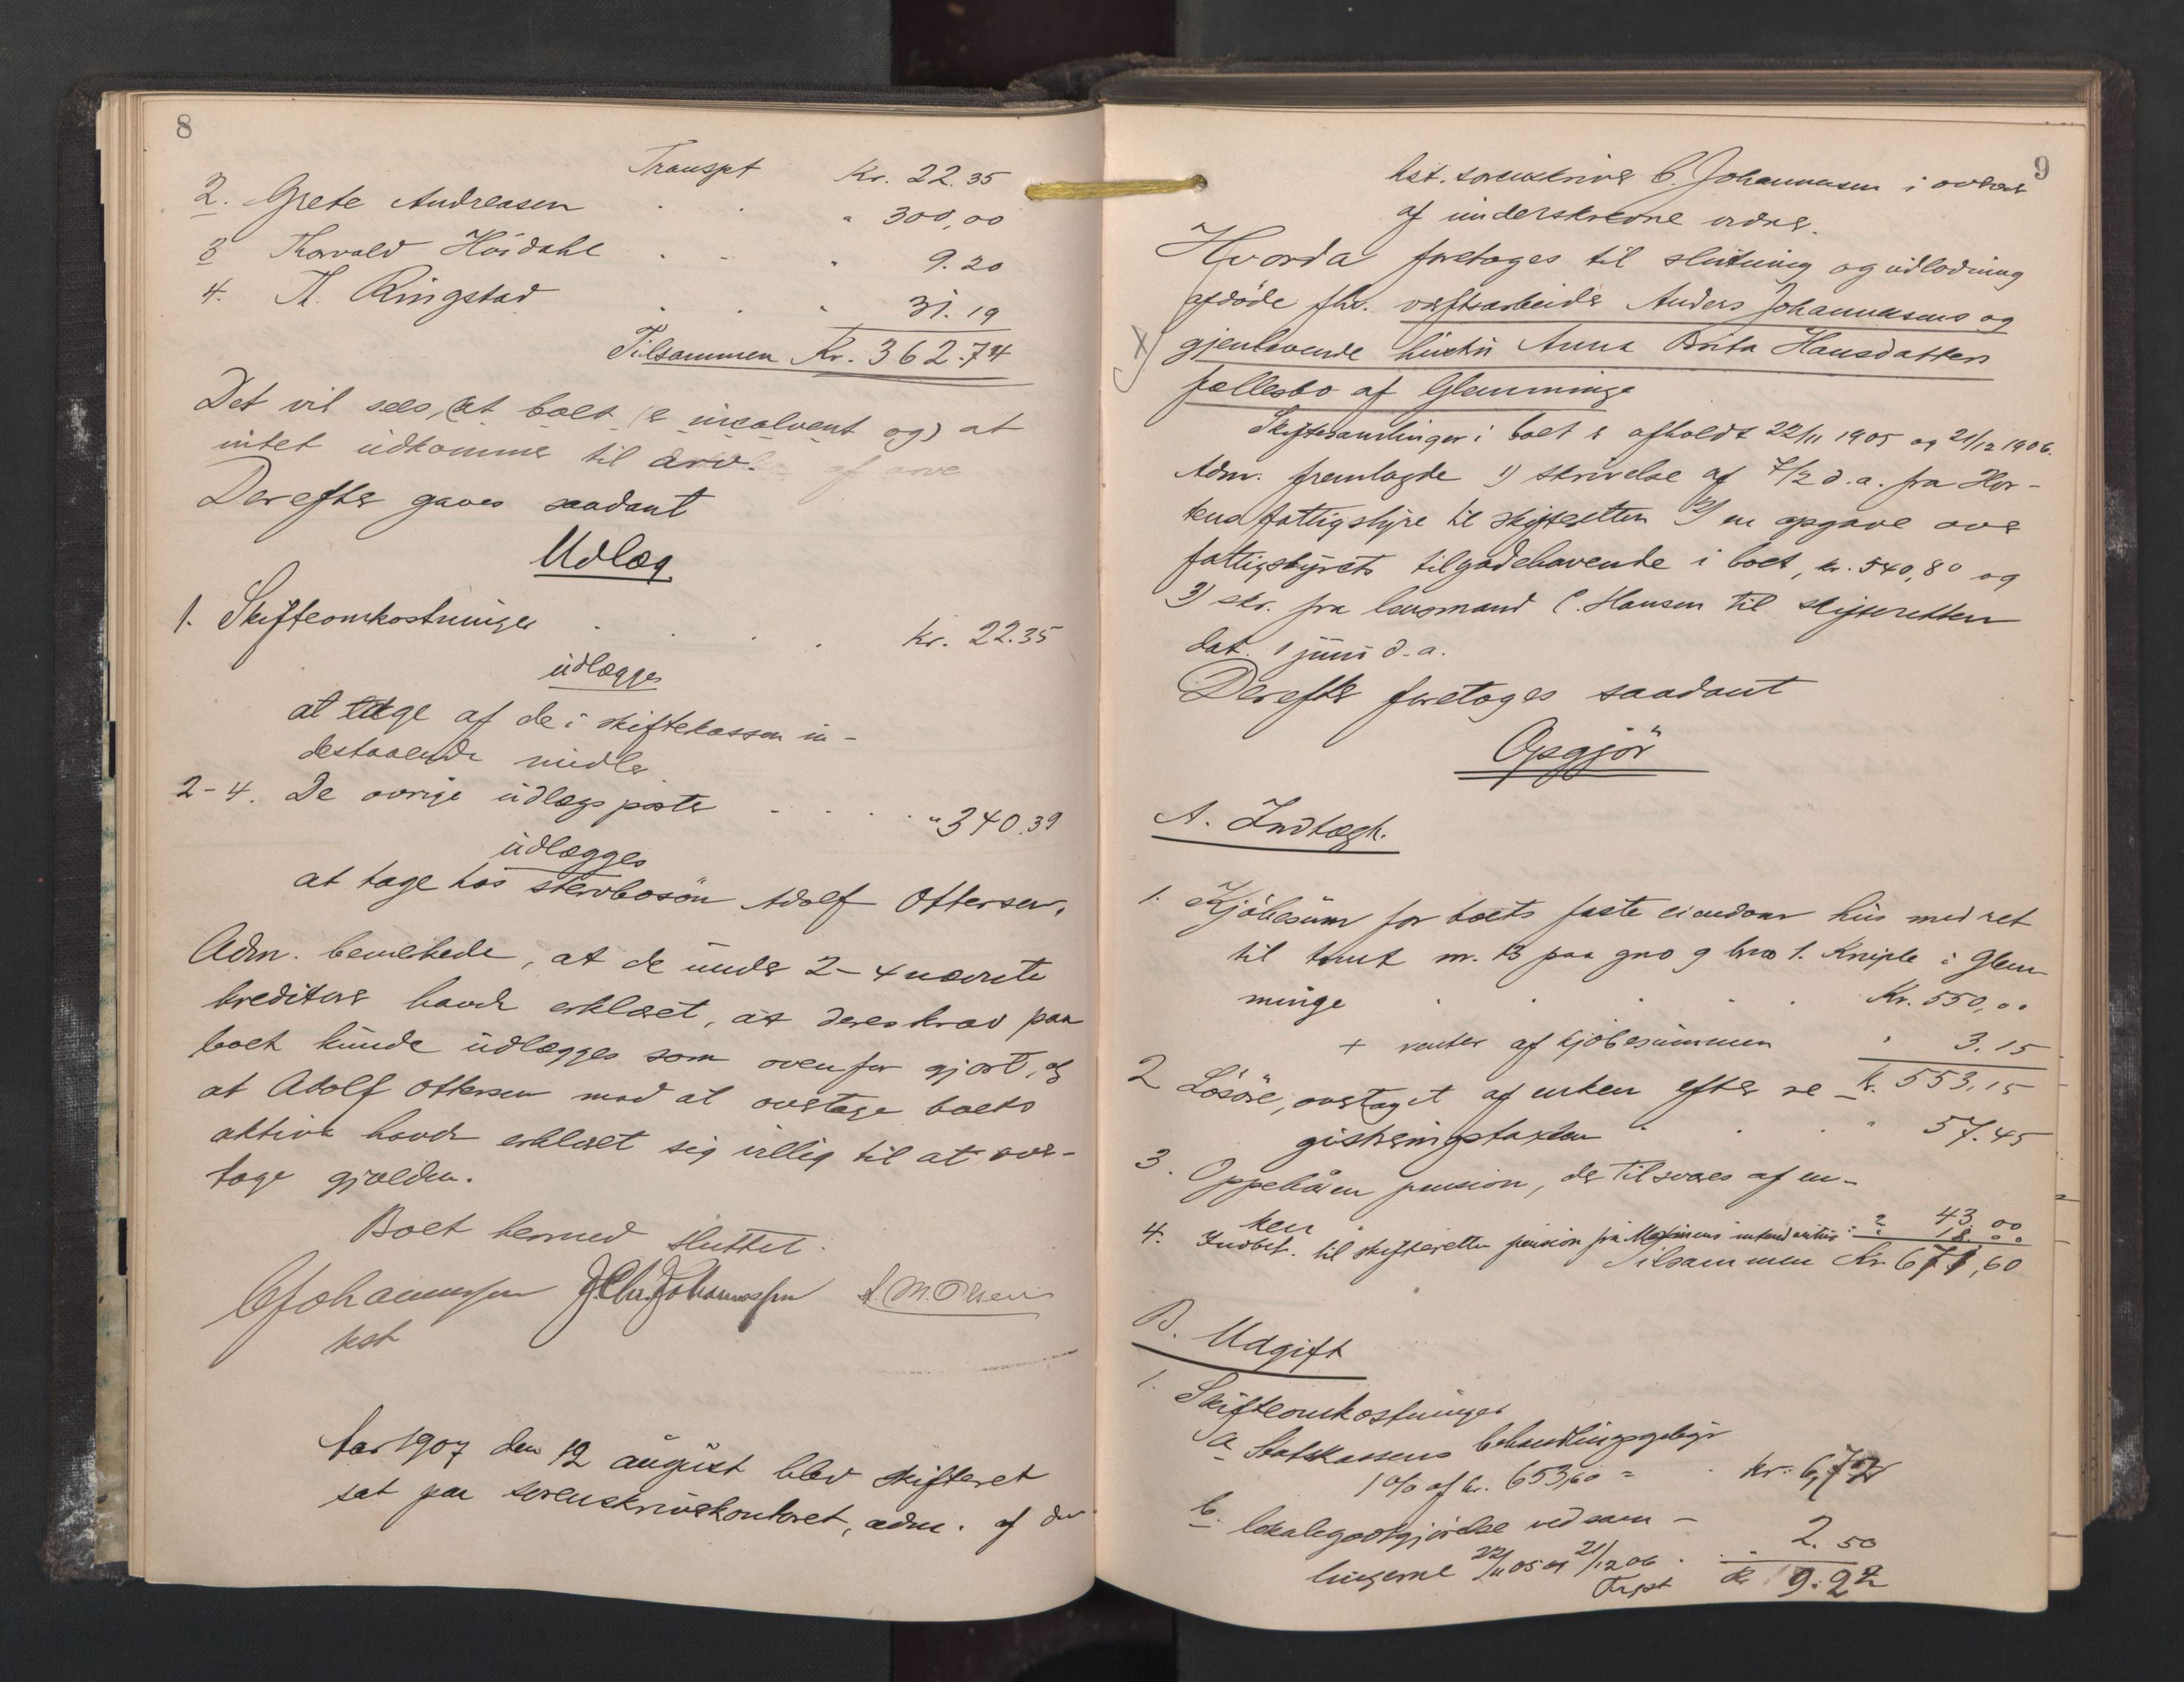 8
Transpt Kr. 22.35
2. Grete Andreasen " 300,00
3 Thorvald Höidahl " 9.20
4. Th. Ringstad " 31.19
Tilsammen Kr. 362.74
Det vil sees, (at boet er insolvent og) at
intet udkommer til arv. af arve
Derefter gaves saadant
Udlæg
1. Skifteomkostninger Kr. 22.35
udlægges
at tage af de i skiftekassen in-
destaaende midler
2-4. De øvrige udlægsposter " 340.39
udlægges
at tage hos stervbosön Adolf Ottersen.
Adm. bemerkede, at de under 2-4 nævnte
kreditorer havde erklæret, at deres krav paa
boet kunde udlægges som ovenfor gjort, og
at Adolf Ottersen mod at overtage boets
aktiva havde erklæret sig villig til at over-
tage gjælden.
Boet hermed sluttet.
CJohannessen J.Chr.Johannessen A.M.Olsen
kst
Aar 1907 den 12 august blev skifteret
sat paa sorenskriverkontoret, adm. af den
9
kst. sorenskriver C. Johannessen i overvær
af underskrevne vidner.
Hvorda foretoges til slutning og udlodning
afdöde fhv. verftsarbeider Anders Johannesens og
gjenlevende hustru Anna Brita Hansdatters
fællesbo af Glemminge
Skiftesamlinger i boet er afholdt 22/11 1905 og 21/12 1906.
Adm. fremlagde 1) skrivelse af 7/2 d.a. fra Hor-
tens fattigstyre til skifteretten 2) en opgave over
fattigstyrets tilgodehavende i boet, kr. 540,80 og
3) skr. fra lensmand C. Hansen til skifteretten
dat. 1 juni d.a.
Derefter foretoges saadant
Opgjör
A. Indtægt.
1. Kjöbesum for boets faste eiendom hus med ret
til tomt nr. 13 paa gno 9 bno 1. Kniple i Glem-
minge Kr. 550,00
+ renter af kjöbesummen " 3.15
Kr. 553,15
2 Lösöre, overtaget af enken efter re-
gistreringstaxten " 57.45
3. Oppebåren pension, der tilsvares af en-
ken " 43.00
4. Indbet. til skifteretten pension fra Marinens intendantur " 18.00
Tilsammen Kr 671,60
B. Udgift
1. Skifteomkostninger
a Statskassens behandlingsgebyr
1 % af kr. 653,60 = Kr. 6,72
b. lokalegodtgjörelse ved sam-
lingerne 22/11 05 og 21/12 06 " 2.50
Trspt Kr 9.22